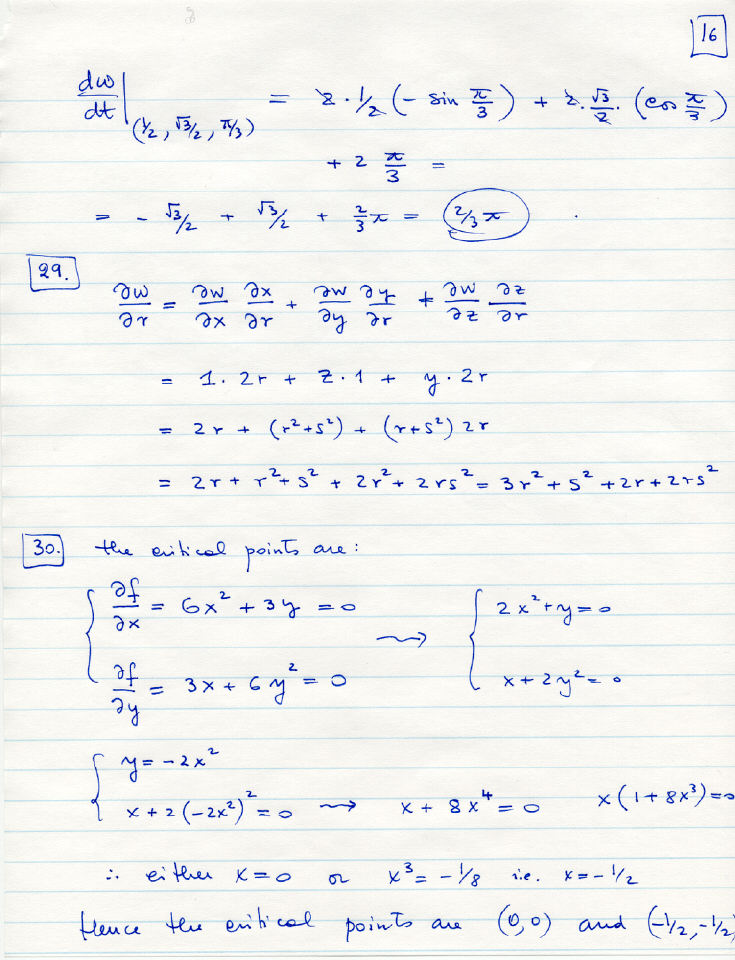 16
dw/dt |(1/2, √3/2, π/3) = 2 · 1/2 (− sin π/3) + 2 · √3/2 · (cos π/3)
+ 2 π/3 =
= − √3/2 + √3/2 + 2/3 π = 2/3 π .
29.
∂w/∂r = ∂w/∂x ∂x/∂r + ∂w/∂y ∂y/∂r + ∂w/∂z ∂z/∂r
= 1 · 2r + z · 1 + y · 2r
= 2r + (r² + s²) + (r + s²) 2r
= 2r + r² + s² + 2r² + 2rs² = 3r² + s² + 2r + 2rs²
30. the critical points are:
{ ∂f/∂x = 6x² + 3y = 0 ⇝ { 2x² + y = 0
∂f/∂y = 3x + 6y² = 0 x + 2y² = 0
{ y = −2x²
x + 2(−2x²)² = 0 ⇝ x + 8x⁴ = 0 x(1 + 8x³) = 0
∴ either x = 0 or x³ = −1/8 i.e. x = −1/2
Hence the critical points are (0,0) and (−1/2, −1/2)